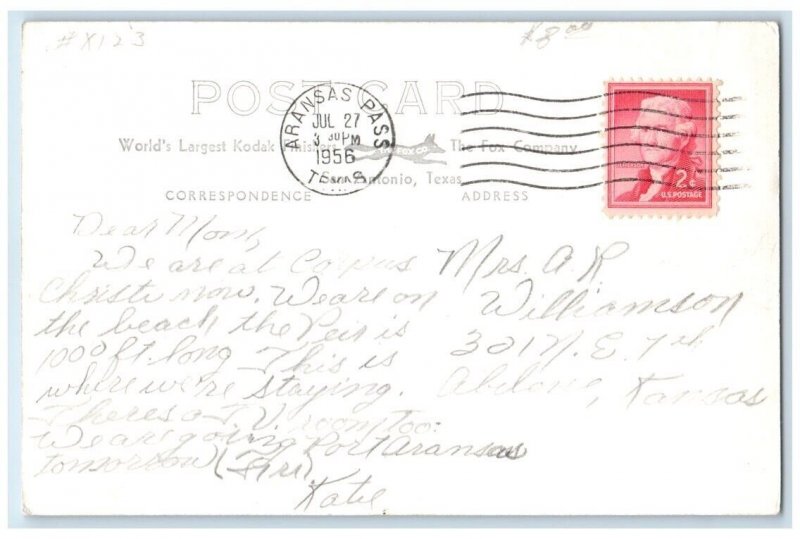 #X123
$8.00
POST CARD
ARANSAS PASS
JUL 27
3 30 PM
1956
TEXAS
World's Largest Kodak Finishers
The Fox Company
FOX CO.
San Antonio, Texas
2¢
U.S. POSTAGE
CORRESPONDENCE
ADDRESS
Dear Mom,
We are at Corpus
Christi now. We are on
the beach the Peir is
1000 ft. long This is
where we're staying.
Theres a T.V. room too.
We are going Port Aransas
tomorrow (Fri)
Katie
Mrs. A. R.
Williamson
321 N. E. 7th
Abilene, Kansas